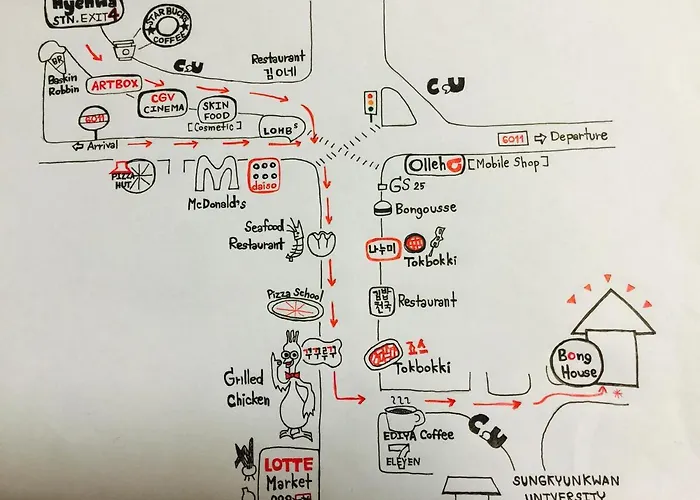 Hyehwa
STN. EXIT 4
STARBUCKS
COFFEE
BR
Baskin
Robbin
CU
Restaurant
김이네
CU
ARTBOX
CGV
CINEMA
SKIN
FOOD
[Cosmetic]
LOHBs
6011
⇦ Arrival
6011 ⇨ Departure
PIZZA
HUT
McDonald's
daiso
Olleh [Mobile Shop]
GS 25
Bongousse
Seafood
Restaurant
나누미
Tokbokki
Pizza School
김밥
천국
Restaurant
죠스
Tokbokki
Grilled
Chicken
Bong
House
EDIYA Coffee
7
ELEVEN
CU
LOTTE
Market
SUNGKYUNKWAN
UNIVERSITY